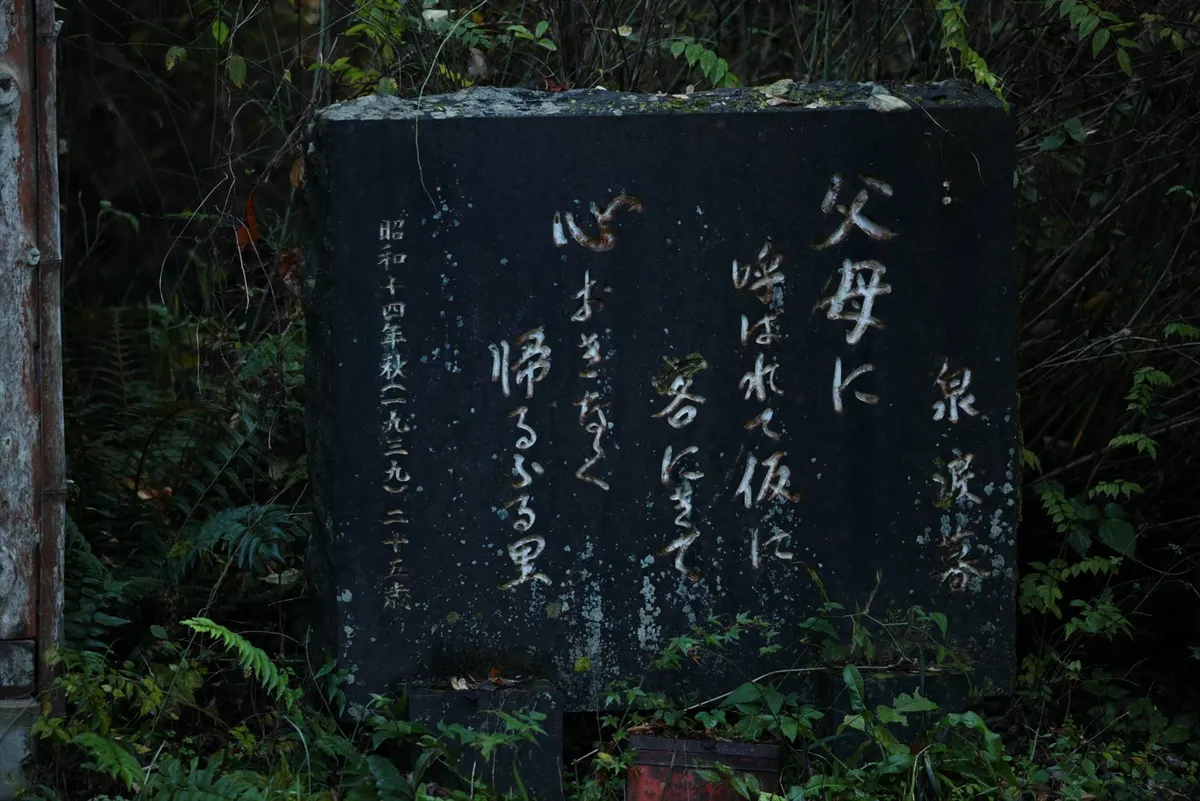 泉
父母に
呼はれて仮に
客にきて
心おきなく
帰るふる里
昭和十四年秋(一九三九)二十五歳